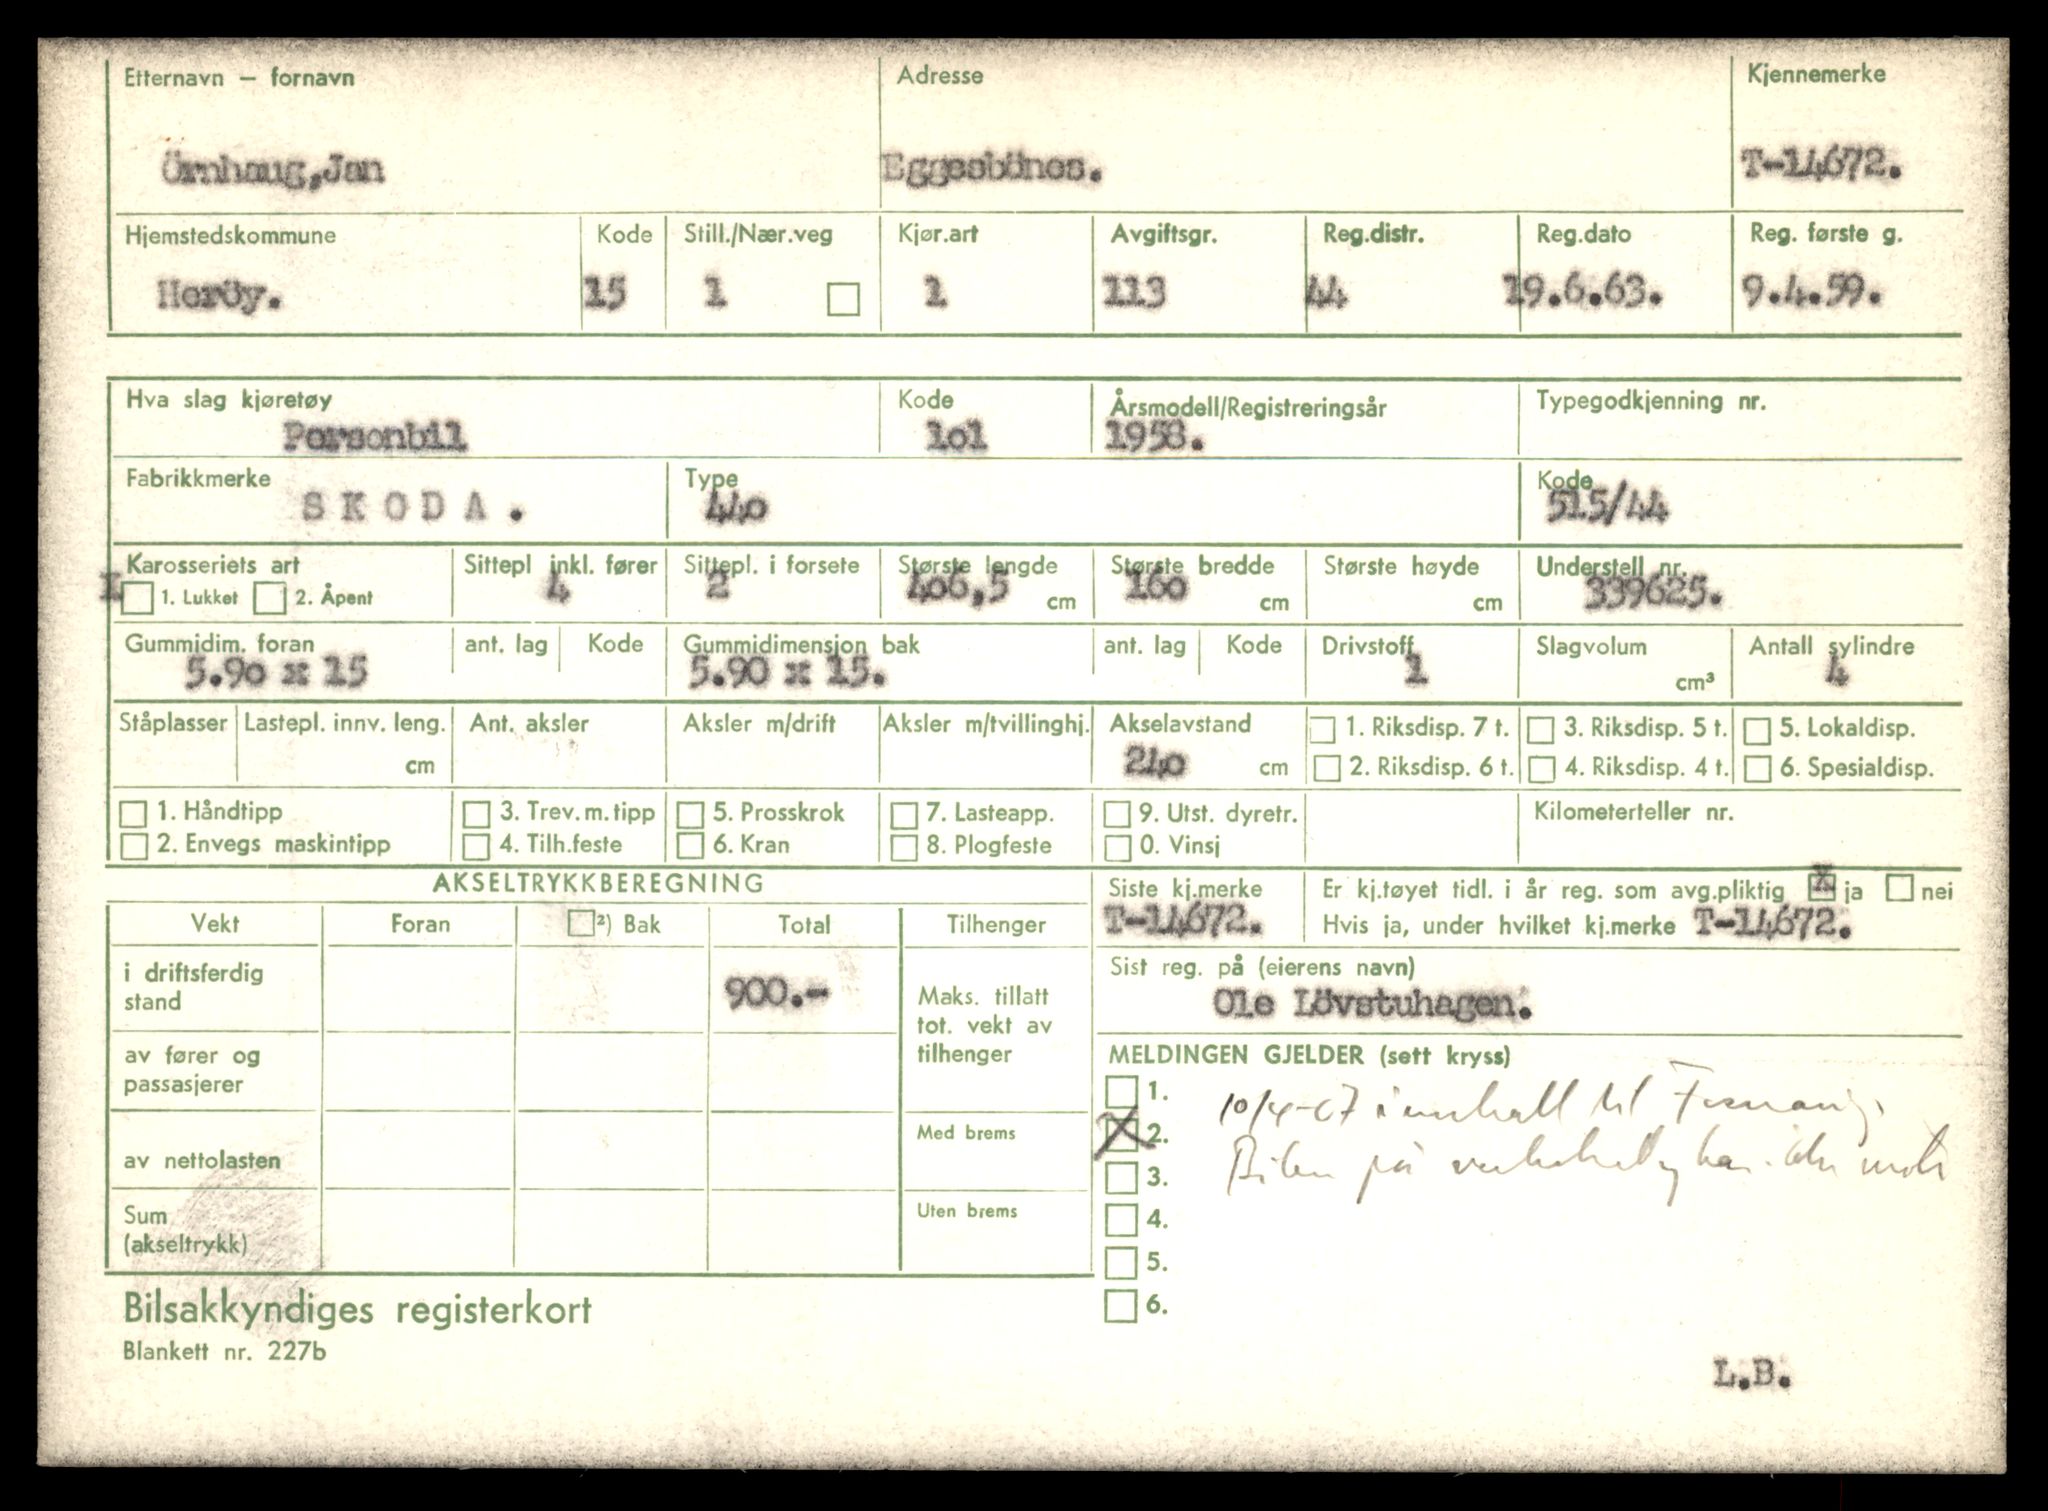 Etternavn – fornavn Adresse Kjennemerke
Örnhaug,Jan Eggesbönes. T-14672.
Hjemstedskommune Kode Still./Nær.veg Kjør.art Avgiftsgr. Reg.distr. Reg.dato Reg. første g.
Heröy. 15 1 1 113 44 19.6.63. 9.4.59.
Hva slag kjøretøy Kode Årsmodell/Registreringsår Typegodkjenning nr.
Personbil 1o1 1958.
Fabrikkmerke Type Kode
SKODA. 44o 515/44
Karosseriets art Sittepl inkl. fører Sittepl. i forsete Største lengde Største bredde Største høyde Understell nr.
1. Lukket 2. Åpent 4 2 4o6,5 cm 16o cm cm 339625.
Gummidim. foran ant. lag Kode Gummidimensjon bak ant. lag Kode Drivstoff Slagvolum Antall sylindre
5.9o x 15 5.90 x 15. 1 cm³ 4
Ståplasser Lastepl. innv. leng. Ant. aksler Aksler m/drift Aksler m/tvillinghj. Akselavstand 1. Riksdisp. 7 t. 3. Riksdisp. 5 t. 5. Lokaldisp.
cm 24o cm 2. Riksdisp. 6 t. 4. Riksdisp. 4 t. 6. Spesialdisp.
1. Håndtipp 3. Trev. m. tipp 5. Prosskrok 7. Lasteapp. 9. Utst. dyretr. Kilometerteller nr.
2. Envegs maskintipp 4. Tilh.feste 6. Kran 8. Plogfeste 0. Vinsj
AKSELTRYKKBEREGNING
Vekt Foran ²) Bak Total Tilhenger
i driftsferdig stand 900.-
av fører og passasjerer
av nettolasten
Sum (akseltrykk)
Maks. tillatt
tot. vekt av
tilhenger
Med brems
Uten brems
Siste kj.merke Er kj.tøyet tidl. i år reg. som avg.pliktig X ja nei
T-14672. Hvis ja, under hvilket kj.merke T-14672.
Sist reg. på (eierens navn)
Ole Lövstuhagen.
MELDINGEN GJELDER (sett kryss)
1. 10/4-67 til
X 2. Bilen på
3.
4.
5.
6.
Bilsakkyndiges registerkort
Blankett nr. 227b
L.B.